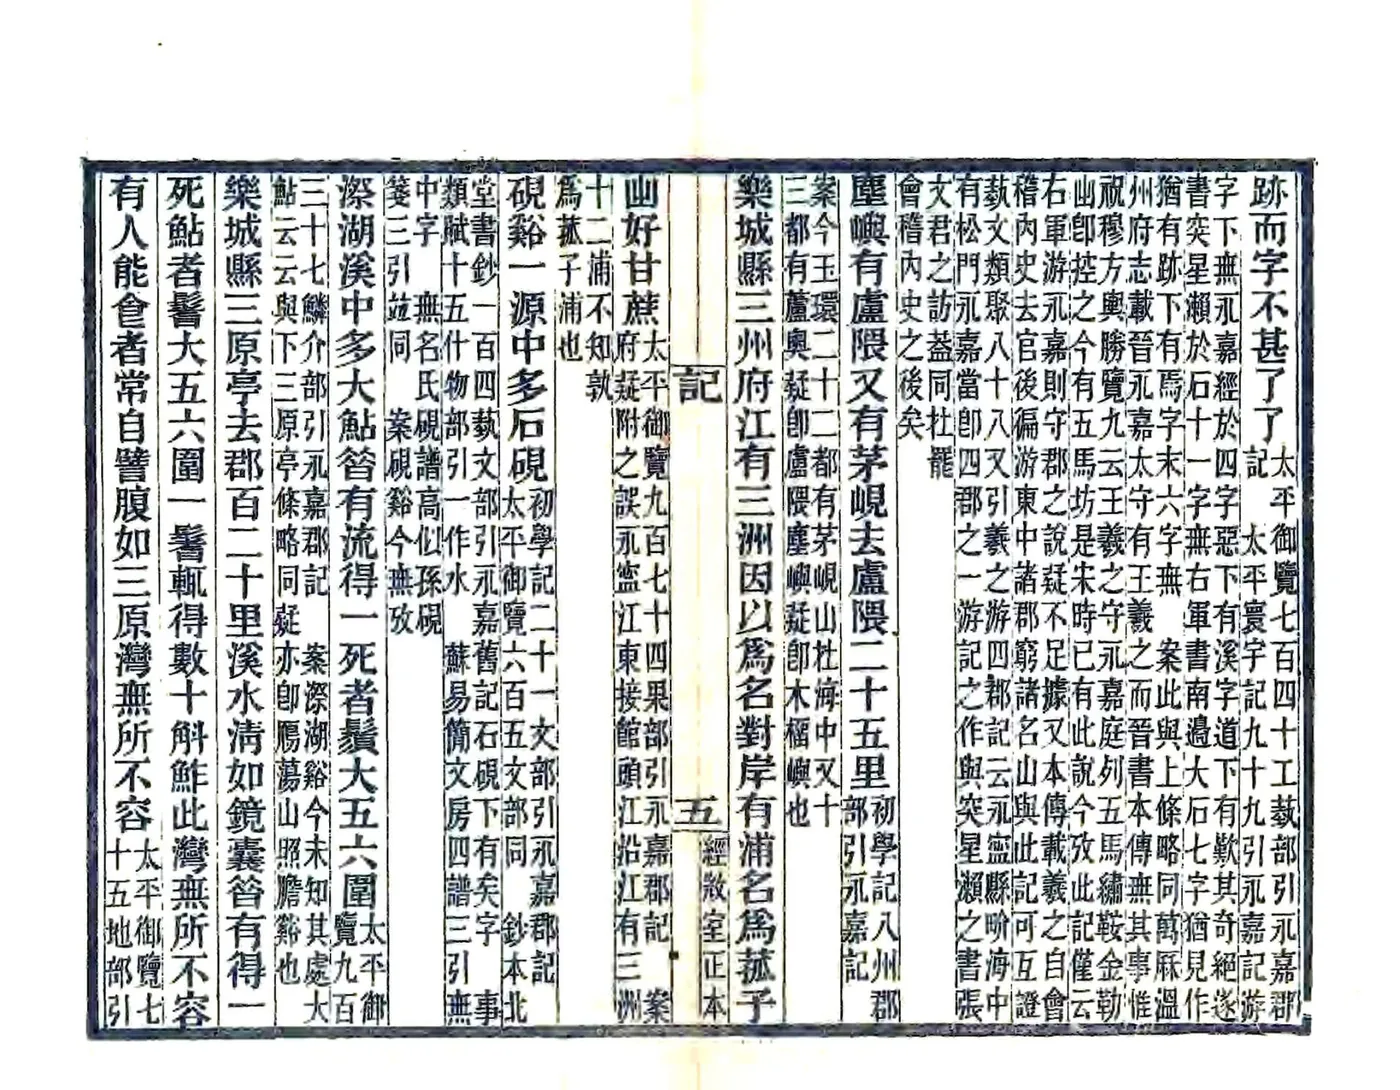 跡而字不甚了了太平御覽七百四十工蓺部引永嘉郡
記　太平寰宇記九十九引永嘉記游
字下無永嘉經於四字惡下有溪字道下有歎其奇絕遂
書突星瀨於石十一字無右軍書南邊大石七字猶見作
猶有跡下有焉字末六字無　案此與上條略同萬厤溫
州府志載晉永嘉太守有王羲之而晉書本傳無其事惟
祝穆方輿勝覽九云王羲之守永嘉庭列五馬繡鞍金勒
出卽控之今有五馬坊是宋時已有此說今攷此記僅云
右軍游永嘉則守郡之說疑不足據又本傳載羲之自會
稽內史去官後徧游東中諸郡窮諸名山與此記可互證
蓺文類聚八十八又引羲之游四郡記云永寍縣畍海中
有松門永嘉當卽四郡之一游記之作與突星瀨之書張
文君之訪葢同杜罷
會稽內史之後矣
塵嶼有盧隈又有茅峴去盧隈二十五里初學記八州郡
部引永嘉記
案今玉環二十二都有茅峴山杜海中又十
三都有蘆奧疑卽盧隈塵嶼疑卽木榴嶼也
樂城縣三州府江有三洲因以爲名對岸有浦名爲菰子
記
五
經敚室正本
出好甘蔗太平御覽九百七十四果部引永嘉郡記　案
府疑附之誤永寍江東接館頭江沿江有三洲
十二浦不知孰
爲菰子浦也
硯谿一源中多石硯初學記二十一文部引永嘉郡記
太平御覽六百五文部同　鈔本北
堂書鈔一百四蓺文部引永嘉舊記石硯下有矣字　事
類賦十五什物部引一作水　蘇易簡文房四譜三引無
中字　無名氏硯譜高似孫硯
箋三引竝同　案硯谿今無攷
漈湖溪中多大鮎笞有流得一死者鬚大五六圍太平御
覽九百
三十七鱗介部引永嘉郡記　案漈湖谿今未知其處大
鮎云云與下三原亭條略同疑亦卽鴈蕩山照膽谿也
樂城縣三原亭去郡百二十里溪水淸如鏡囊笞有得一
死鮎者鬐大五六圍一鬐輒得數十斛鮓此灣無所不容
有人能倉者常自譬腹如三原灣無所不容太平御覽七
十五地部引